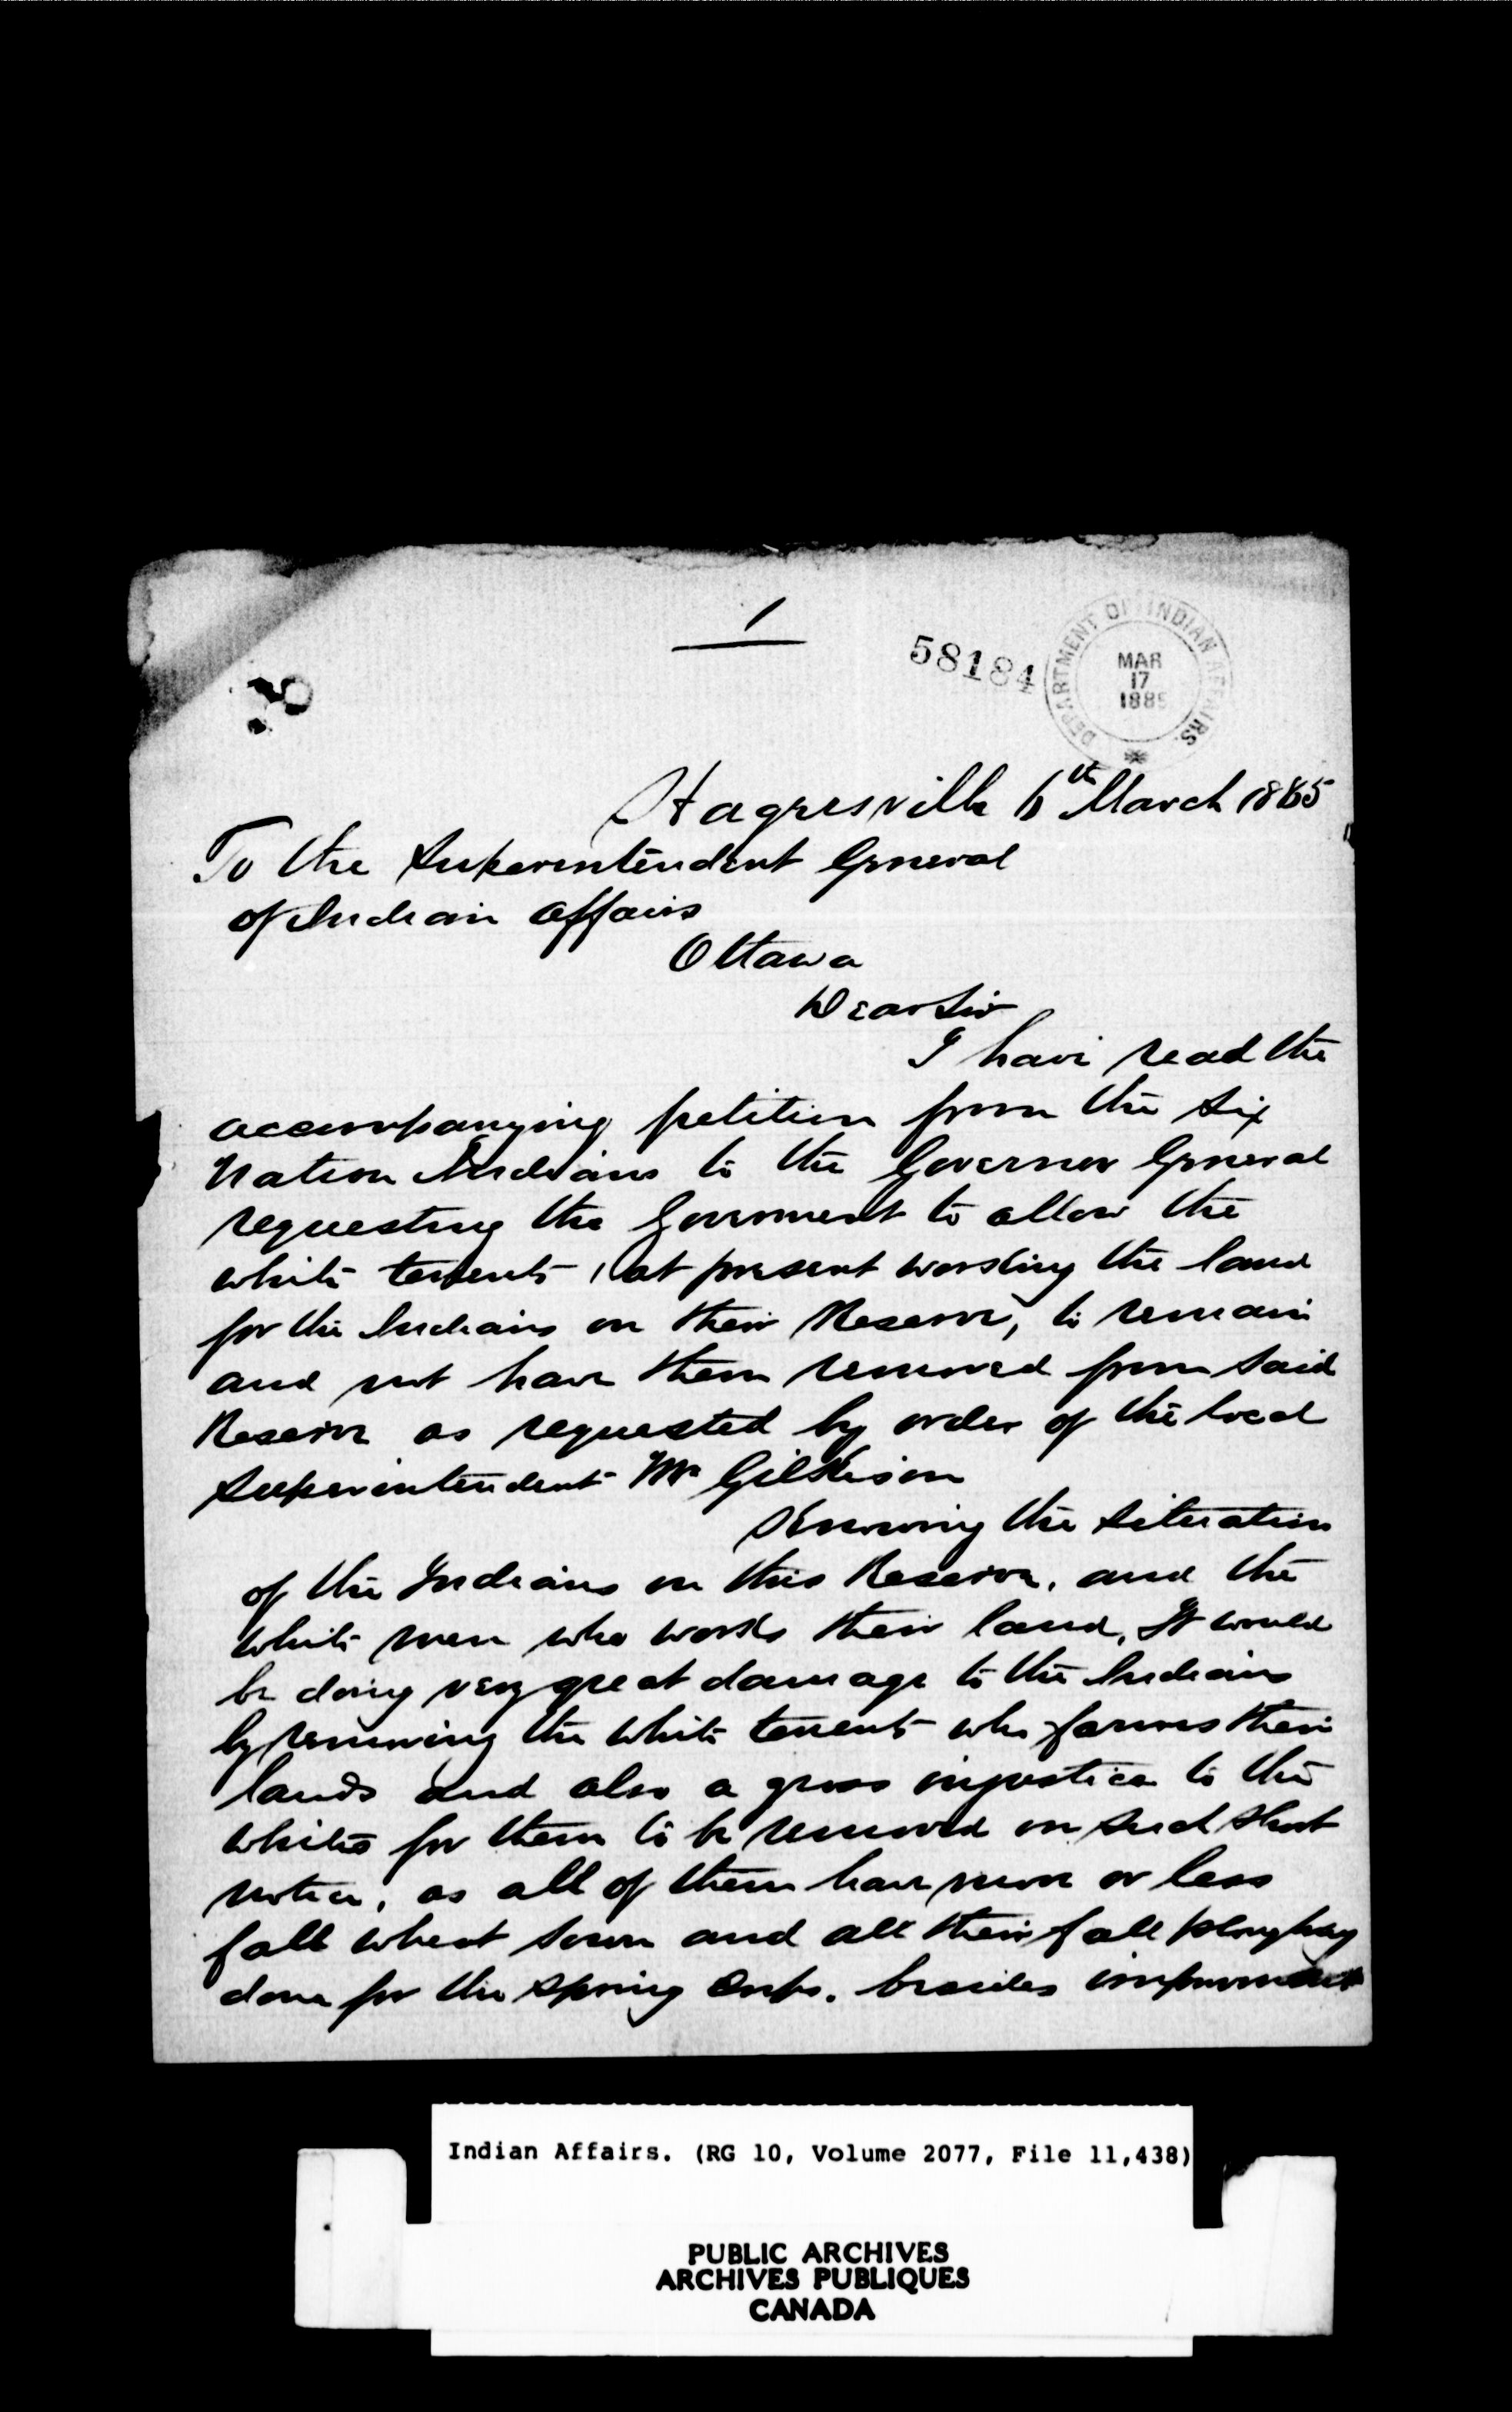 1
58184
DEPARTMENT OF INDIAN AFFAIRS.
MAR
17
1885
Hagersville 6th March 1885
To the Superintendent General
of Indian Affairs
Ottawa
Dear Sir
I have read the
accompanying petition from the Six
Nation Indians to the Governor General
requesting the Goverment to allow the
white tenents, at present working the land
for the Indians on their Reserve, to remain
and not have them removed from said
Reserve as requested by order of the local
Superintendent Mr Gilkison
Knowing the situation
of the Indians on this Reserve, and the
white men who works their land, It would
be doing very great damage to the Indians
by removing the white tenents who farms their
lands and also a gross injustice to the
whites for them to be removed on such short
notice, as all of them have more or less
fall wheat sown and all their fall ploughing
done for the spring crops. besides improvements
Indian Affairs. (RG 10, Volume 2077, File 11,438)
PUBLIC ARCHIVES
ARCHIVES PUBLIQUES
CANADA